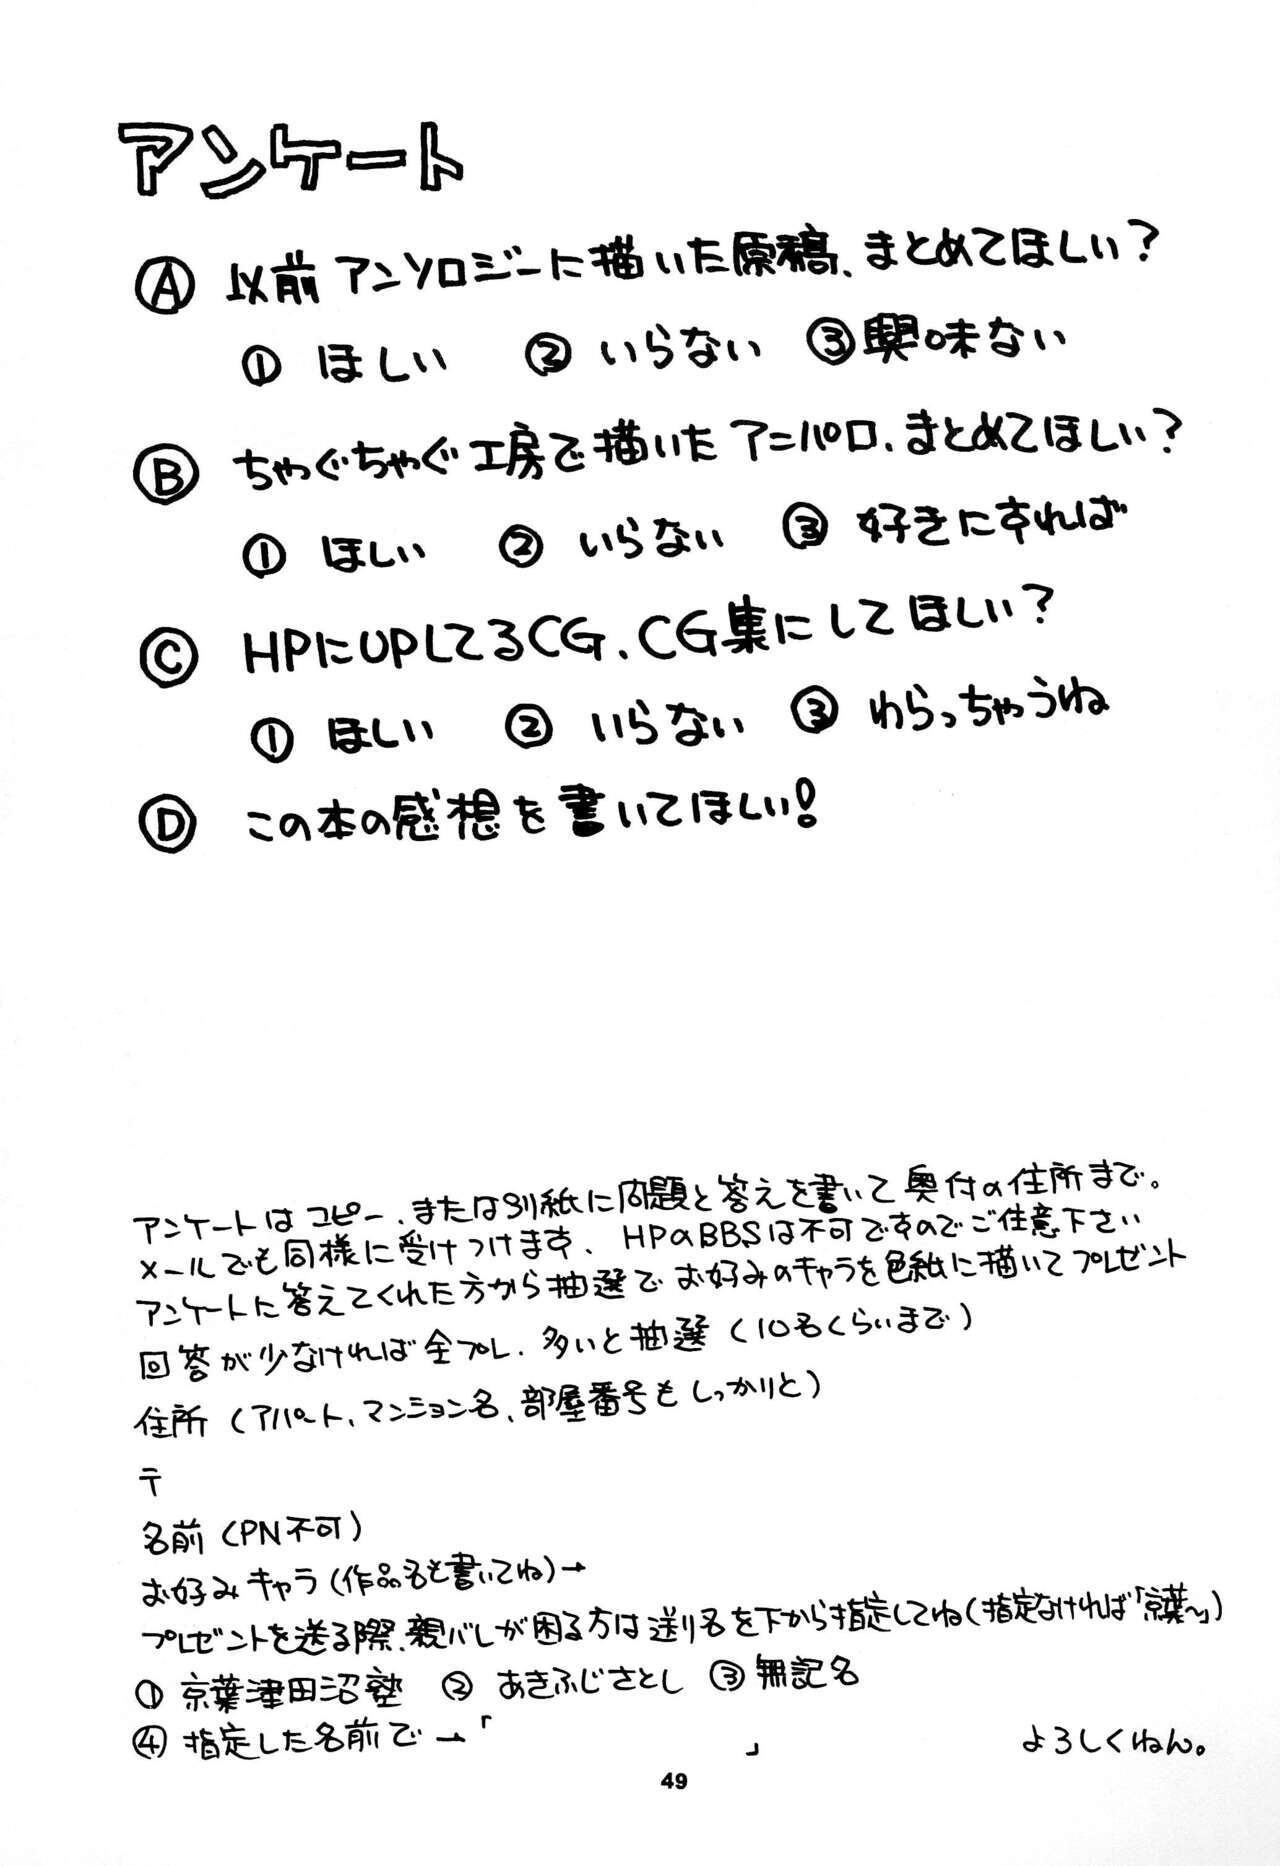 アンケート
Ⓐ 以前アンソロジーに描いた原稿、まとめてほしい？
① ほしい ② いらない ③ 興味ない
Ⓑ ちゃぐちゃぐ工房で描いたアニパロ、まとめてほしい？
① ほしい ② いらない ③ 好きにすれば
Ⓒ HPにUPしてるCG、CG集にしてほしい？
① ほしい ② いらない ③ わらっちゃうね
Ⓓ この本の感想を書いてほしい！
アンケートはコピー、または別紙に問題と答えを書いて奥付の住所まで。
メールでも同様に受けつけます、HPのBBSは不可ですのでご注意下さい
アンケートに答えてくれた方から抽選でお好みのキャラを色紙に描いてプレゼント
回答が少なければ全プレ、多いと抽選（10名くらいまで）
住所（アパート、マンション名、部屋番号もしっかりと）
〒
名前（PN不可）
お好みキャラ（作品名も書いてね）→
プレゼントを送る際、親バレが困る方は送り名を下から指定してね（指定なければ「京葉～」）
① 京葉津田沼塾 ② あきふじさとし ③ 無記名
④ 指定した名前で→「 」 よろしくねん。
49